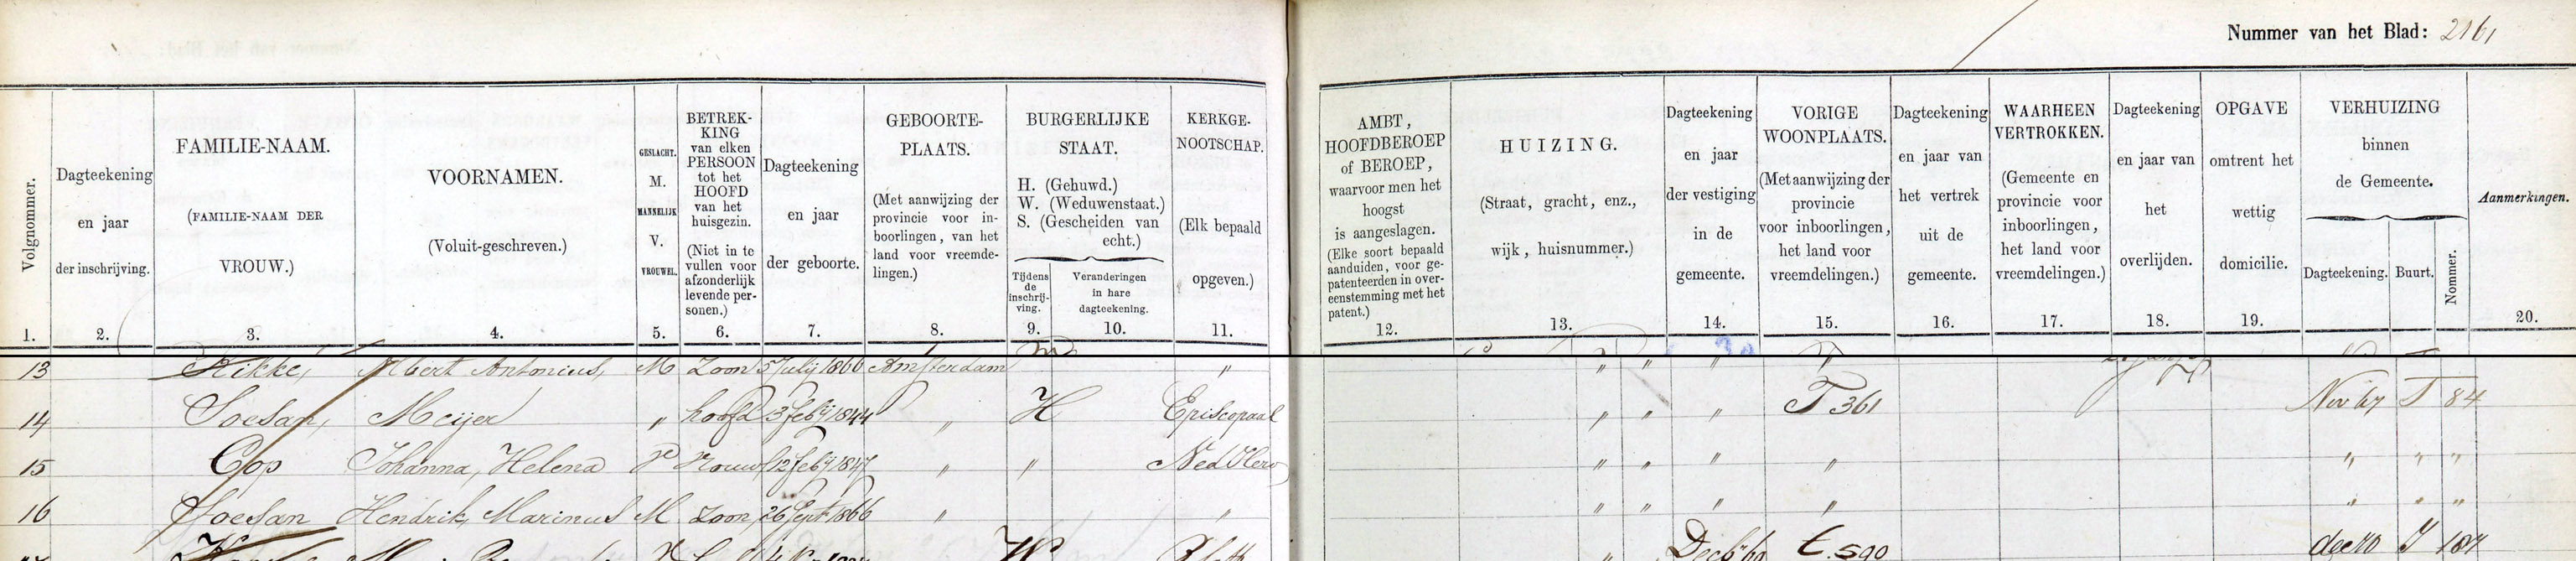 Nummer van het Blad: 2161
Volgnommer.
1.
Dagteekening
en jaar
der inschrijving.
2.
FAMILIE-NAAM.
(FAMILIE-NAAM DER
VROUW.)
3.
VOORNAMEN.
(Voluit-geschreven.)
4.
GESLACHT.
M.
MANNELIJK
V.
VROUWEL.
5.
BETREK-
KING
van elken
PERSOON
tot het
HOOFD
van het
huisgezin.
(Niet in te
vullen voor
afzonderlijk
levende per-
sonen.)
6.
Dagteekening
en jaar
der geboorte.
7.
GEBOORTE-
PLAATS.
(Met aanwijzing der
provincie voor in-
boorlingen, van het
land voor vreemde-
lingen.)
8.
BURGERLIJKE
STAAT.
H. (Gehuwd.)
W. (Weduwenstaat.)
S. (Gescheiden van
echt.)
Tijdens
de
inschrij-
ving.
9.
Veranderingen
in hare
dagteekening.
10.
KERKGE-
NOOTSCHAP.
(Elk bepaald
opgeven.)
11.
AMBT,
HOOFDBEROEP
of BEROEP,
waarvoor men het
hoogst
is aangeslagen.
(Elke soort bepaald
aanduiden, voor ge-
patenteerden in over-
eenstemming met het
patent.)
12.
HUIZING.
(Straat, gracht, enz.,
wijk, huisnummer.)
13.
Dagteekening
en jaar
der vestiging
in de
gemeente.
14.
VORIGE
WOONPLAATS.
(Met aanwijzing der
provincie
voor inboorlingen,
het land voor
vreemdelingen.)
15.
Dagteekening
en jaar van
het vertrek
uit de
gemeente.
16.
WAARHEEN
VERTROKKEN.
(Gemeente en
provincie voor
inboorlingen,
het land voor
vreemdelingen.)
17.
Dagteekening
en jaar van
het
overlijden.
18.
OPGAVE
omtrent het
wettig
domicilie.
19.
VERHUIZING
binnen
de Gemeente.
Dagteekening.
Buurt.
Nommer.
Aanmerkingen.
20.
13 Rikke, Albert Antonius, M Zoon 5 July 1866 Amsterdam " " " "
14 Soesan, Meijer " hoofd 3 feby 1844 " H Episcopaal " " " T 361 Nov 67 T 84
15 Cop Johanna, Helena V vrouw 12 feby 1847 " " Ned Herv " " " " " " "
16 Soesan Hendrik, Marinus M Zoon 26 Sept 1866 " " " " " " " " "
W " Decbr 69 dec 70 107